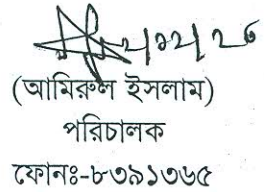 (আমিরুল ইসলাম)
পরিচালক
ফোনঃ-৮৩৯১৩৬৫